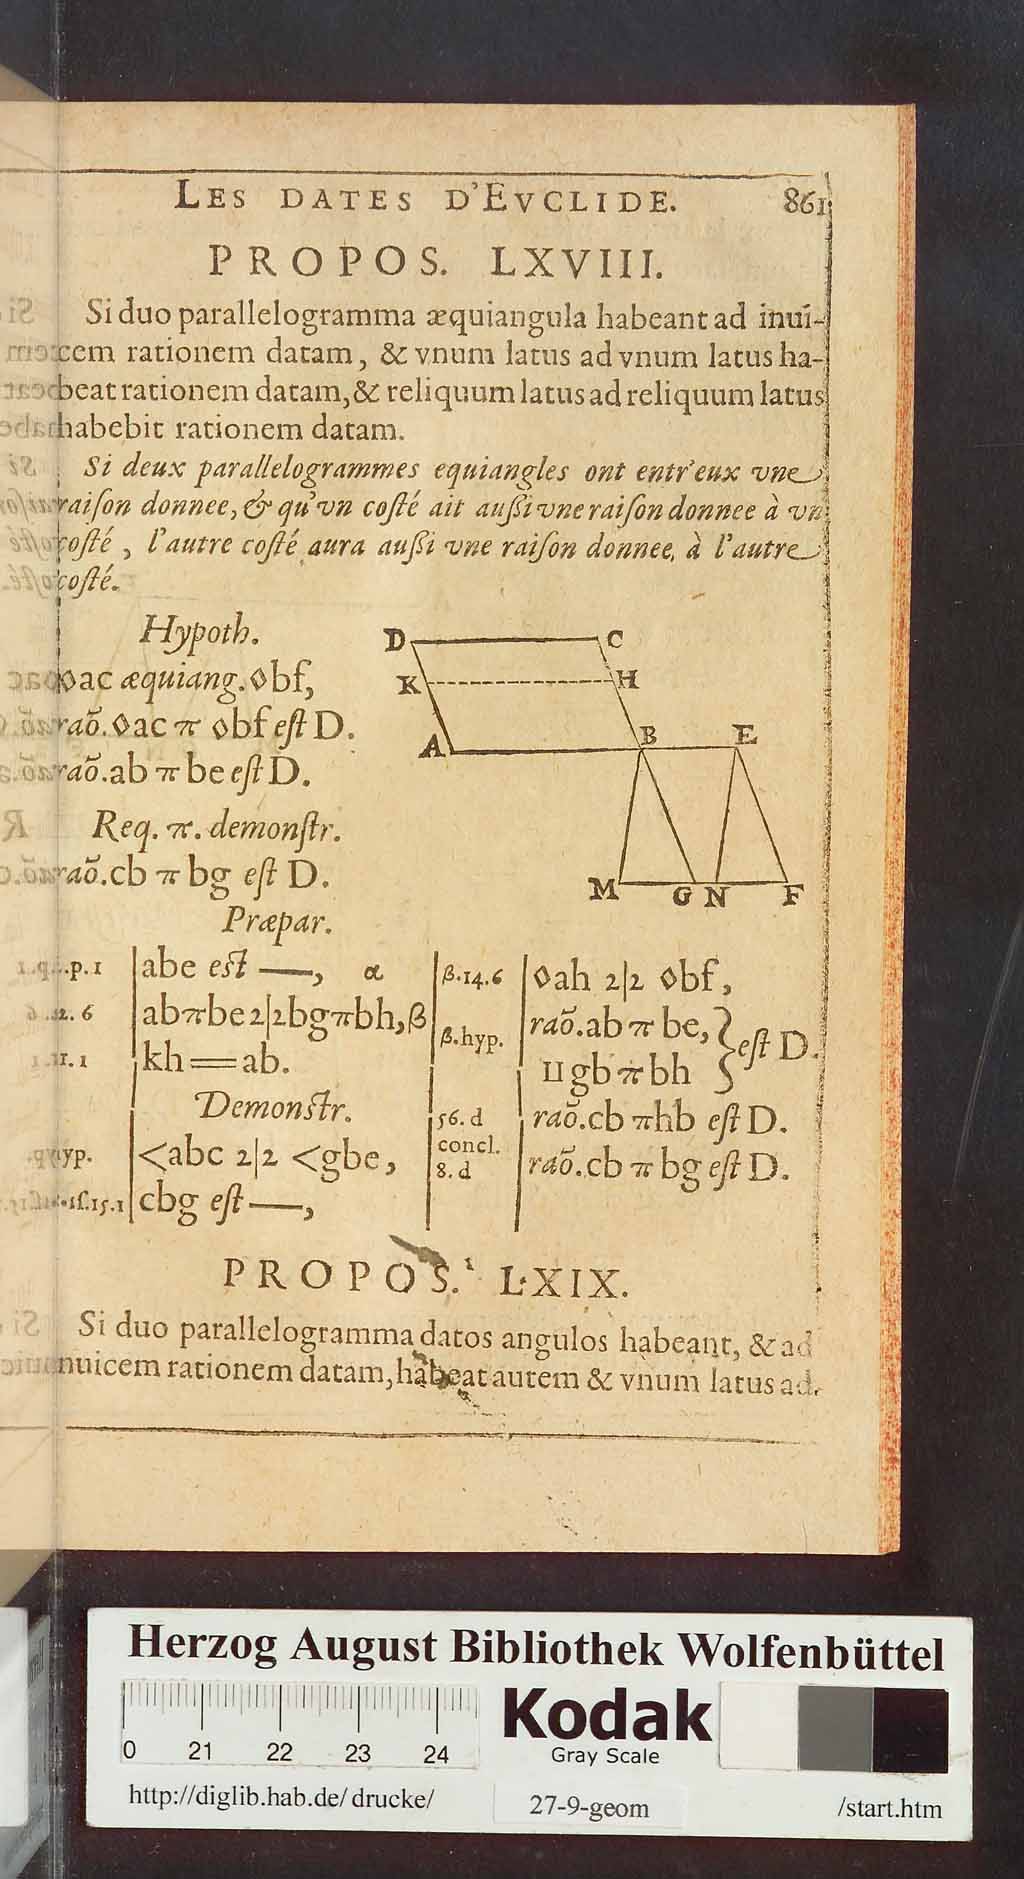 LES DATES D'EVCLIDE. 861
PROPOS. LXVIII.
Si duo parallelogramma æquiangula habeant ad inui-
cem rationem datam, & vnum latus ad vnum latus ha-
beat rationem datam, & reliquum latus ad reliquum latus
habebit rationem datam.
Si deux parallelogrammes equiangles ont entr'eux vne
raiſon donnee, & qu'vn coſté ait auſsi vne raiſon donnee à vn
coſté, l'autre coſté aura auſsi vne raiſon donnee, à l'autre
coſté.
Hypoth.
◊ac æquiang. ◊bf,
raõ. ◊ac π ◊bf eſt D.
raõ. ab π be eſt D.
Req. π. demonſtr.
raõ. cb π bg eſt D.
D C
K H
A B E
M G N F
Præpar.
p. 1 abe eſt —, α
2. 6 abπbe 2|2 bgπbh, β
1 kh = ab.
Demonſtr.
yp. <abc 2|2 <gbe,
15.1 cbg eſt —,
β.14.6 ◊ah 2|2 ◊bf,
β.hyp. raõ. ab π be, } eſt D.
⊔gb π bh
56. d raõ. cb π hb eſt D.
concl.
8. d raõ. cb π bg eſt D.
PROPOS. LXIX.
Si duo parallelogramma datos angulos habeant, & ad
nuicem rationem datam, habeat autem & vnum latus ad
Herzog August Bibliothek Wolfenbüttel
0 21 22 23 24
Kodak
Gray Scale
http://diglib.hab.de/drucke/ 27-9-geom /start.htm